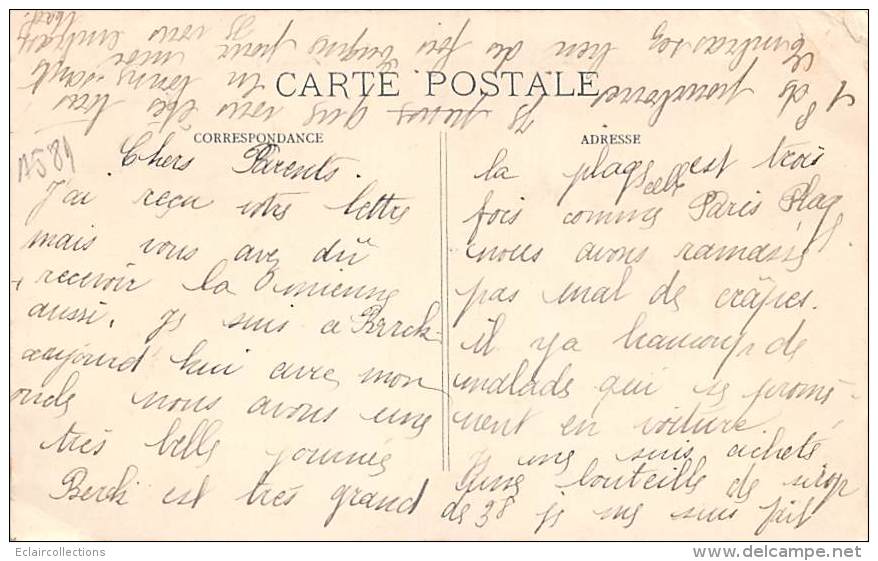 CARTE POSTALE
CORRESPONDANCE
ADRESSE
A589
Chers Parents.
J'ai reçu votre lettre
mais vous avez dû
recevoir la mienne
aussi. Je suis a Berck
aujourd hui avec mon
oncle nous avons une
très belle journée
Berck est très grand
la plage est trois
fois comme Paris Plage
nous avons ramassé
pas mal de crâpes.
il y a beaucoup de
malade qui se promè
nent en voiture.
je me suis acheté
une bouteille de sirop
de 38 je me suis fait
que vous êtes très
embrassez bien de fois pour
vous embrass
Eclaircollections
www.delcampe.net